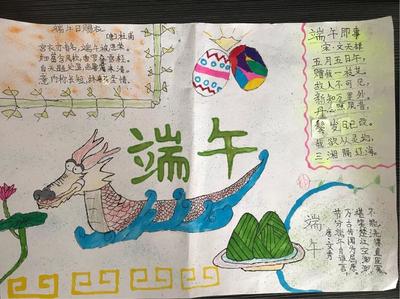 端午日赐衣
(唐)杜甫
宫衣亦有名,端午被恩荣。
细葛含风软,香罗叠雪轻。
自天题处湿,当暑著来清。
意内称长短,终身荷圣情。
端午
端午即事
宋·文天祥
五月五日午,
赠我一枝艾。
故人不可见,
新知万里外。
丹心照夙昔,
鬓 日已改。
我欲从灵均,
三湘隔辽海。
端午
节分端午自谁言,
万古传闻为屈原。
堪笑楚江空渺渺,
不能洗得直臣冤。
唐·文秀